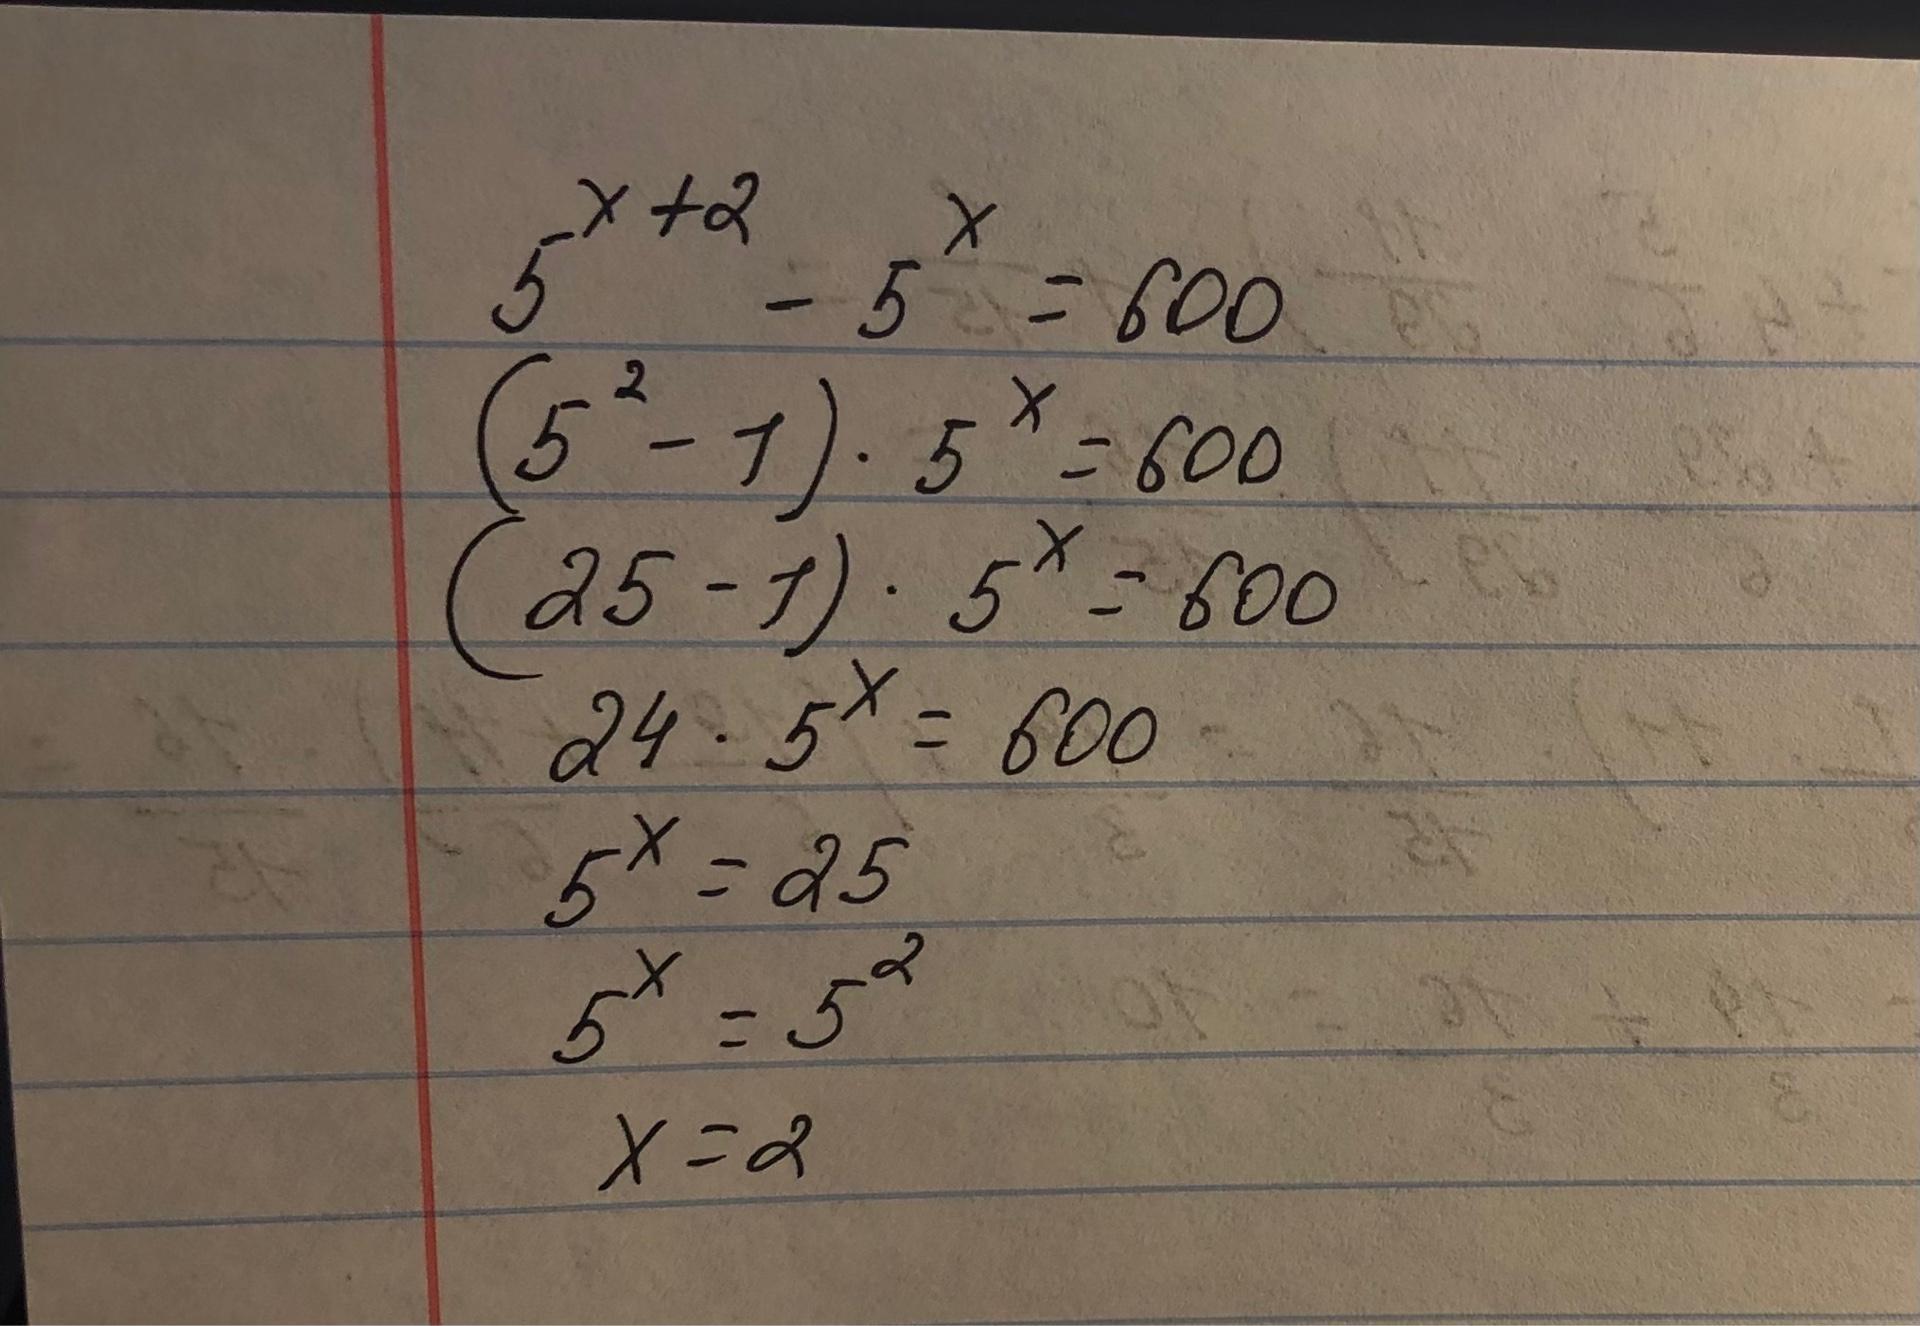 5^{x+2} - 5^x = 600
(5^2 - 1) · 5^x = 600
(25 - 1) · 5^x = 600
24 · 5^x = 600
5^x = 25
5^x = 5^2
x = 2